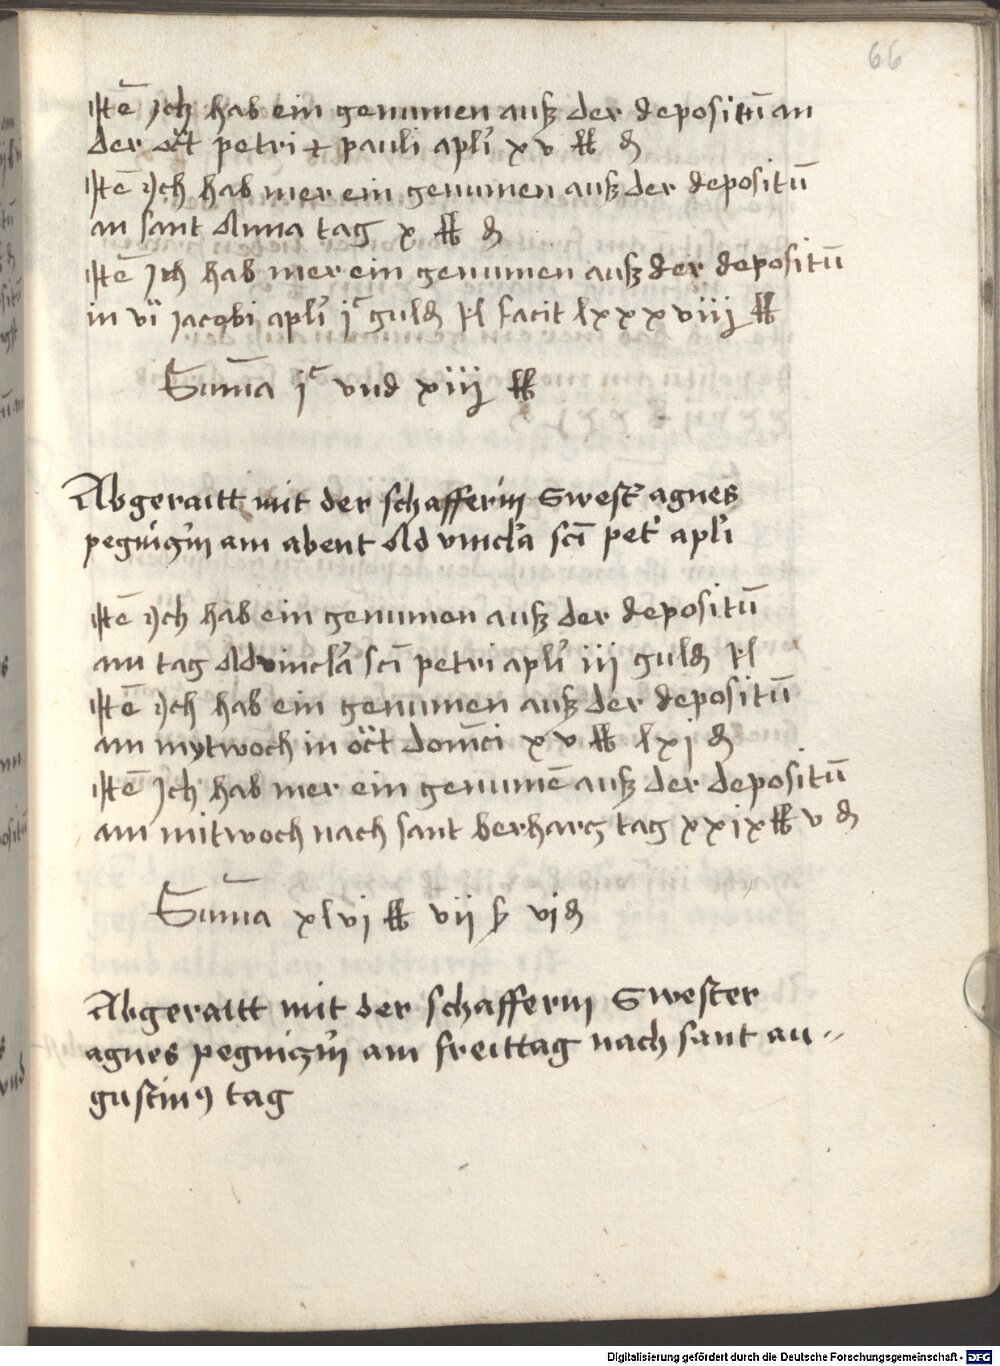 66
Itē Jch hab ein genumen auß der depositū an
der oct̄ petri & pauli apl'i xv ℔ ₰
Itē Jch hab mer ein genumen auß der depositū
an sant Anna tag x ℔ ₰
Itē Jch hab mer ein genumen auß der depositū
in vi͏̈ Jacobi apl'i jᶜ guld̄ Rl facit lxxxviij ℔
Sum̄a jᶜ vnd xiij ℔
Abgeraitt mit der schafferin Swest' agnes
pegnicz'in am abent Ad vincl'a sci̅ pet' apl'i
Itē Jch hab ein genumen auß der depositū
am tag Ad vincl'a sci̅ petri apl'i iij guld̄ Rl
Itē Jch hab ein genumen auß der depositū
am mytwoch in oct̄ domīci xv ℔ lxj ₰
Itē Jch hab mer ein genumē auß der depositū
am mitwoch nach sant berharcz tag xxix ℔ v ₰
Sum̄a xlvj ℔ vij ß vj ₰
Abgeraitt mit der schafferin Swester
agnes pegnicz'in am freittag nach sant au„
gustinꝰ tag
Digitalisierung gefördert durch die Deutsche Forschungsgemeinschaft - DFG